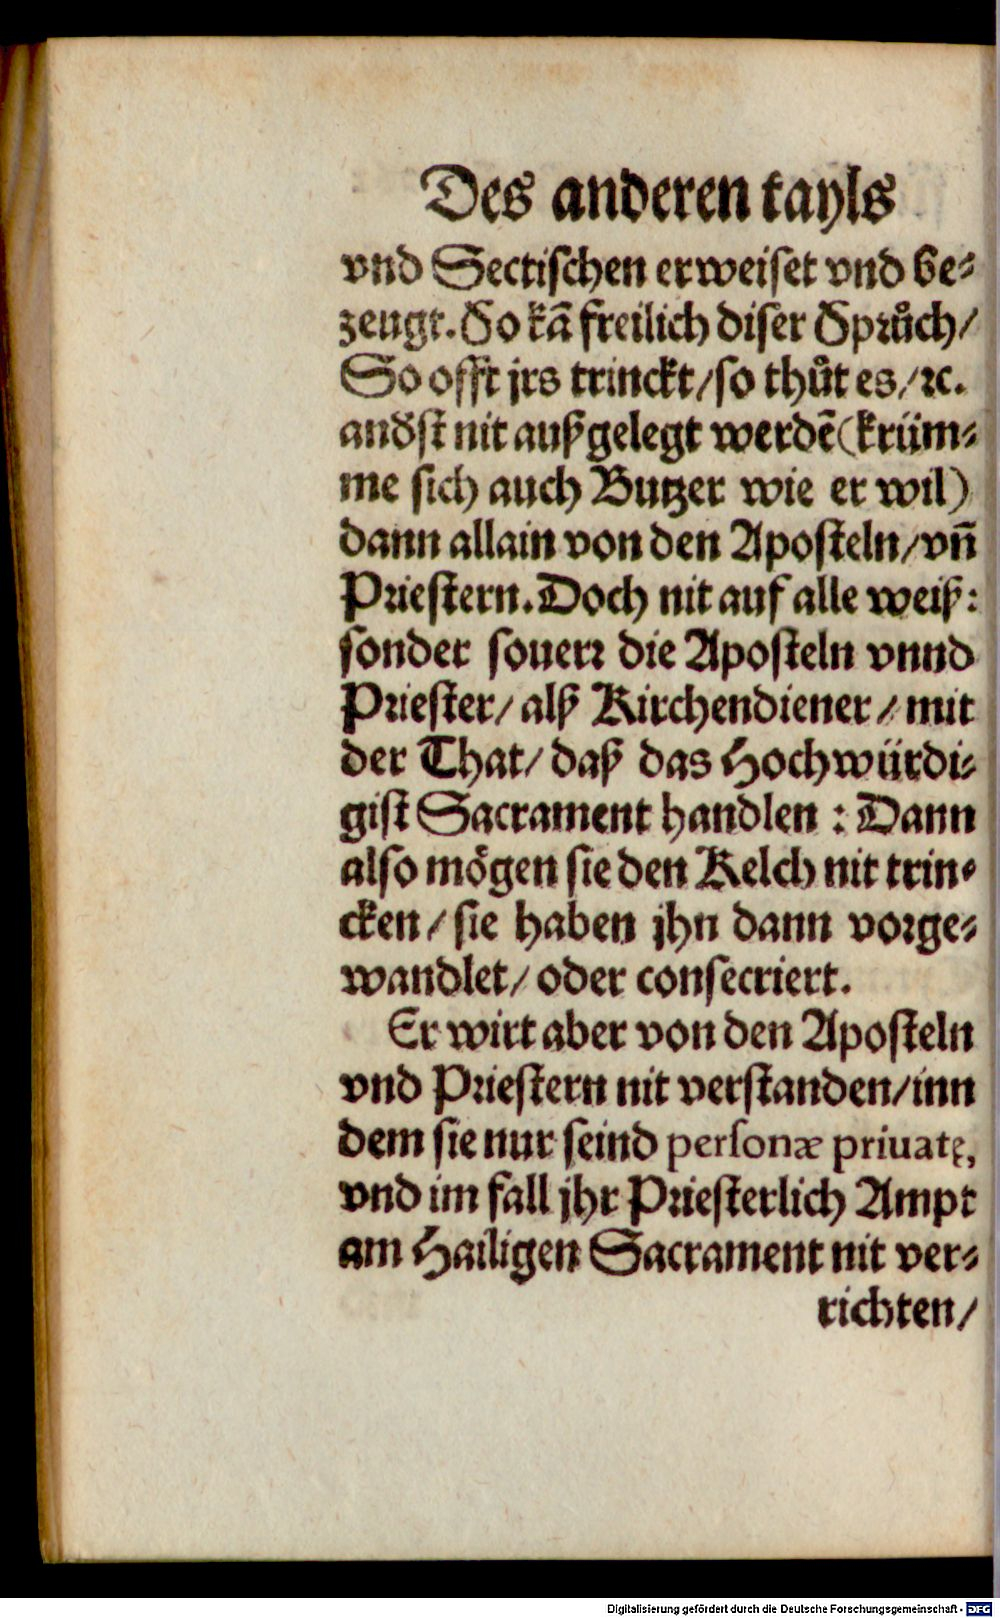 Des anderen tayls
vnd Sectischen erweiset vnd be⸗
zeugt. So kã freilich diser Spruͦch/
So offt jrs trinckt/so thuͦt es/ꝛc.
andst nit außgelegt werdẽ (krüm⸗
me sich auch Butzer wie er wil)
dann allain von den Aposteln/vñ
Priestern. Doch nit auf alle weiß:
sonder souerr die Aposteln vnnd
Priester/ alß Kirchendiener/ mit
der That/ daß das Hochwürdi⸗
gist Sacrament handlen : Dann
also mögen sie den Kelch nit trin⸗
cken/ sie haben jhn dann vorge⸗
wandlet/ oder consecriert.
Er wirt aber von den Aposteln
vnd Priestern nit verstanden/inn
dem sie nur seind personæ priuatę,
vnd im fall jhr Priesterlich Ampt
am Hailigen Sacrament nit ver⸗
richten/
Digitalisierung gefördert durch die Deutsche Forschungsgemeinschaft - DFG